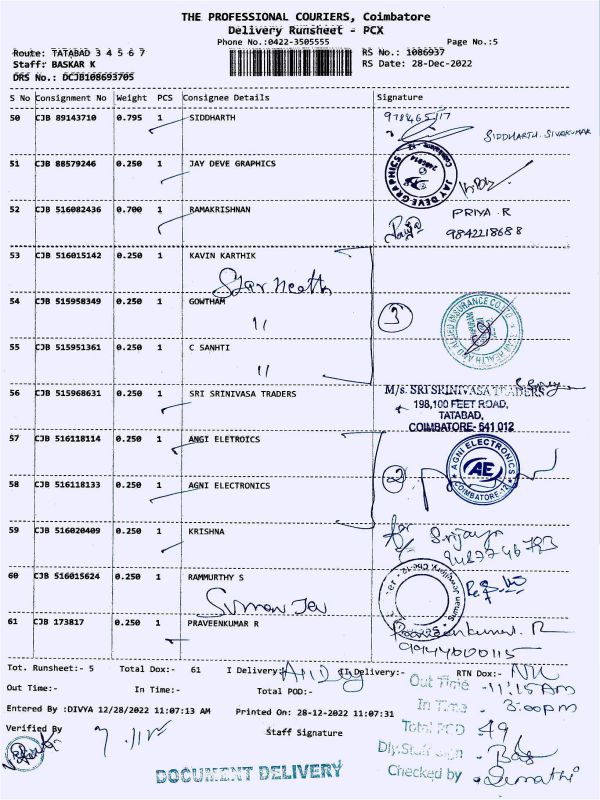 THE PROFESSIONAL COURIERS, Coimbatore
Delivery Runsheet - PCX
Phone No.:0422-3505555
Page No.:5
Route: TATABAD 3 4 5 6 7
RS No.: 1086937
Staff: BASKAR K
RS Date: 28-Dec-2022
DRS No.: DCJB108693705
S No Consignment No Weight PCS Consignee Details Signature
50 CJB 89143710 0.795 1 SIDDHARTH
SIDDHARTH. SIVAKUMAR
51 CJB 88579246 0.250 1 JAY DEVE GRAPHICS
JAY DEVE GRAPHICS
52 CJB 516082436 0.700 1 RAMAKRISHNAN
PRIYA. R
9842218688
53 CJB 516015142 0.250 1 KAVIN KARTHIK
Star Health
54 CJB 515958349 0.250 1 GOWTHAM
"
3
55 CJB 515951361 0.250 1 C SANHTI
"
56 CJB 515968631 0.250 1 SRI SRINIVASA TRADERS
M/s. SRI SRINIVASA TRADERS
198,100 FEET ROAD,
TATABAD,
COIMBATORE- 641 012
57 CJB 516118114 0.250 1 ANGI ELETROICS
AGNI ELECTRONICS
AE
COIMBATORE-12
58 CJB 516118133 0.250 1 AGNI ELECTRONICS
2
59 CJB 516020409 0.250 1 KRISHNA
60 CJB 516015624 0.250 1 RAMMURTHY S
Suman Jew
61 CJB 173817 0.250 1 PRAVEENKUMAR R
Praveenkumar. R
Tot. Runsheet:- 5 Total Dox:- 61 I Delivery: II Delivery:- RTN Dox:- Nil
Out Time:- In Time:- Total POD:-
Out Time - 11:15 Am
In Time - 3:00pm
Entered By :DIVYA 12/28/2022 11:07:13 AM Printed On: 28-12-2022 11:07:31
Total POD 49
Verified By Staff Signature
Dly.Staff Sign
Checked by
DOCUMENT DELIVERY